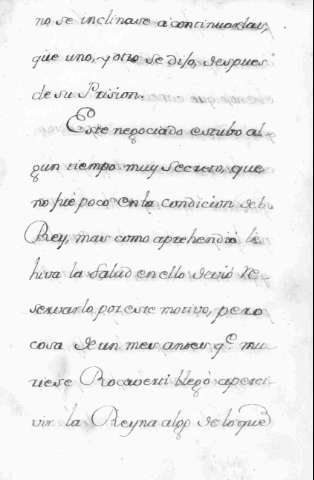 no se inclinase a continuarlas,
que uno, y otro se dijo, despues
de su Prision.
Este negociado estubo al
gun tiempo muy secreto, que
no fue poco en la condicion del
Rey, mas como aprehendió le
hiva la salud en ello devió re-
servarlo por este motivo, pero
cosa de un mes antes q.e mu
riese Rocaverti llegó a perci
vir la Reyna algo de lo que